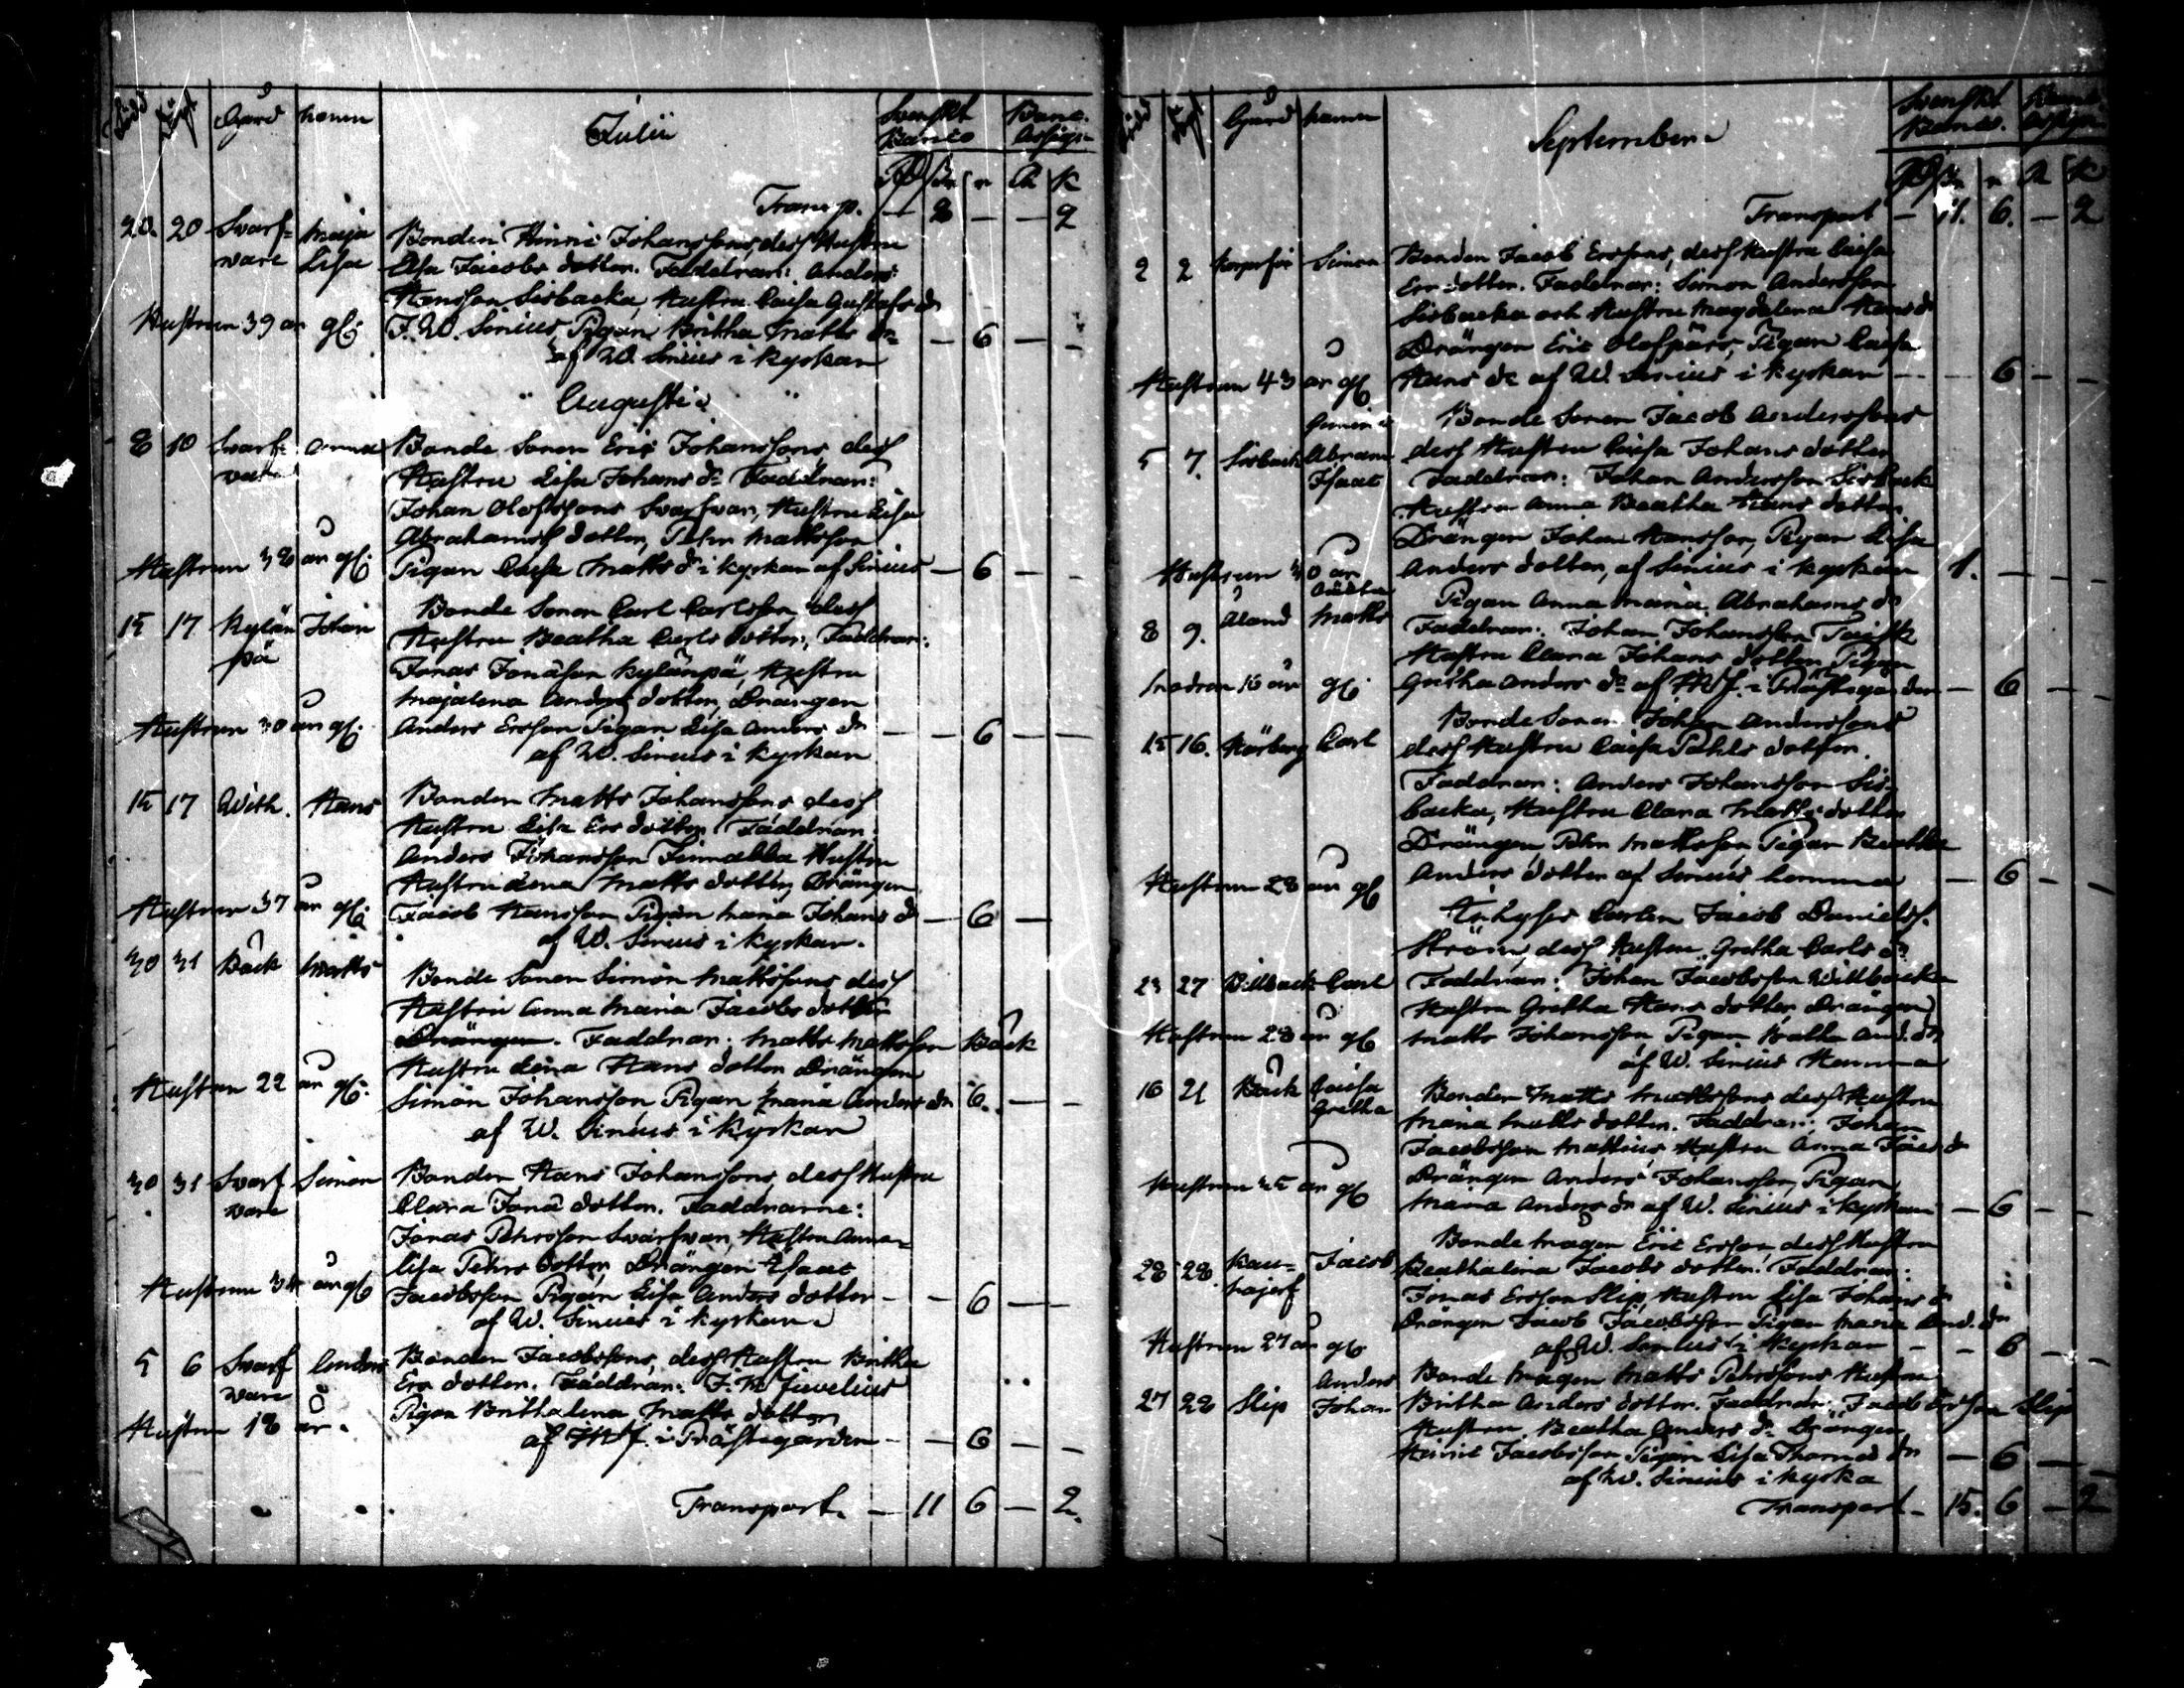 Född Döpt Gård namn Julii Svenskt Banco Banc. Assign.
Transp. — 8 — — 2
20. 20 Svarf= Maja Bonden Hinric Johanssons, dess Hustru
vare Lisa Lisa Jacobs dotter. Faddrar: Anders
Hansson Sisbacka, Hustru Caisa Gustafs dr
Hustrun 39 år gl. F. W. Sinius Pigan Britha Matts dr — 6 — —
af W. Sinius i kyrkan
Augusti
8 10 Svarf= Anna Bonde Sonen Eric Johanssons dess
vare Hustru Lisa Johans dr Faddrar:
Johan Olofssons Svarfvar, Hustru Lisa
Abrahams dotter, Pehr Mattsson
Hustrun 38 år gl. Pigan Caisa Matts dr i kyrkan af Sinius — 6 — —
15 17 Kylän Johan Bonde Sonen Carl Carlsson dess
pä Hustru Beatha Carls dotter, Faddrar:
Jonas Jonasson Kylänpä, Hustru
Majalena Anders dotter, Drängen
Hustrun 30 år gl. Anders Ersson Pigan Lisa Anders dr — — 6 — —
af W. Sinius i kyrkan
15 17 With. Hans Bonden Matts Johanssons dess
Hustru Lisa Ers dotter Faddrar:
Anders Johansson Finnabba Hustru
Hustru Lena Matts dotter, Drängen
Hustrun 37 år gl. Jacob Hansson Pigan Maria Johans dr — 6 —
af W. Sinius i kyrkan.
30 31 Back Matts Bonde Sonen Simon Mattssons dess
Hustru Anna Maria Jacobs dotter
Drängen. Faddrar: Matts Mattsson Back
Hustru Lena Hans dotter Drängen
Hustrun 22 år gl. Simon Johansson Pigan Maria Anders dr 6. — —
af W. Sinius i kyrkan
30 31 Svarf Simon Bonden Hans Johanssons dess Hustru
vare Clara Jona dotter. Faddrarne:
Jonas Pehrsson Svarfvar, Hustru Anna=
Lisa Pehrs dotter Drängen Isaac
Hustrun 34 år gl Jacobsson Pigan Lisa Anders dotter — — 6 — —
af W. Sinius i kyrkan
5 6 Svarf Anders Bonden Jacobssons, dess Hustru Britha
vare Ers dotter. Faddrar: J. M. Juvelius
Hustrun 18 år. Pigan Brithalena Matts dotter
af i Prästegården — — 6 — —
Transport. — 11 6 — 2.
Född Döpt Gård namn September Svenskt Banco. Banc. Assign.
Transport — 11. 6. — 2
2 2 Simon Bonden Jacob Erssons, dess Hustru Caisa
Ers dotter. Faddrar: Simon Andersson
Sisbacka och Hustru Magdelena Hans dr
Drängen Eric Olofsson, Pigan Caisa
Hustrun 43 år gl Hans dr af W. Sinius i kyrkan — — 6 — —
Bonde Sonen Jacob Anderssons
5 7. Sisback Abram dess Hustru Caisa Johans dotter
Isaac Faddrar: Johan Andersson Sisback
Hustru Anna Beatha Hans dotter.
Drängen Johan Hansson, Pigan Lisa
Hustrun 30 år Anders dotter, af Sinius i kyrkan 1. — — —
Oäkta Pigan Anna Maria Abrahams dr
8 9. Åland Matts Faddrar: Johan Johansson
Hustru Clara Johans dotter Pigan
Modren 16 år gl. Gretha Anders dr af i Prästegården — 6 — —
Bonde Sonen Johan Anderssons
15 16. Carl dess Hustru Caisa Pehrs dotter.
Faddrar: Anders Johansson Sis-
backa, Hustru Clara Matts dotter
Drängen Pehr Mattsson, Pigan Beatha
Hustrun 28 år gl Anders dotter af Sinius hemma — 6 — —
Inhyses Carlen Jacob Daniels.
Ström, dess Hustru Gretha Carls dr
23 27 Willback Carl Faddrar: Johan Jacobsson Willbacka
Hustru Gretha Hans dotter Drängen
Hustrun 28 år gl Matts Johansson Pigan And. dr
af W. Sinius Hemma
16 21 Back Caisa Bonden Matts Mattssons dess Hustru
Gretha Maria Matts dotter. Faddrar: Johan
Jacobsson Hustru Anna Jacs dr
Hustrun 35 år gl Drängen Anders Johansson, Pigan
Maria Anders dr af W. Sinius i kyrkan — 6 — —
Bonde Magen Eric Ersson, dess Hustru
28 28 Kau= Jacob Beathalena Jacobs dotter. Faddrar:
Jonas Ersson Slip, Hustru Lisa Johans dr
Drängen Jacob Jacobsson Pigan Maria And. dr
Hustrun 27 år gl. af W. Sinius i kyrkan — — 6 — —
Anders Bonde Magen Matts Pehrssons Hustru
27 28 Slip Johan Britha Anders dotter. Faddrar: Jacob Ersson Slip
Hustru Beatha Anders dr Drängen
Hinric Jacobsson Pigan Lisa Thomas dr — 6 — —
af W. Sinius i kyrka
Transport — 15. 6 — 2